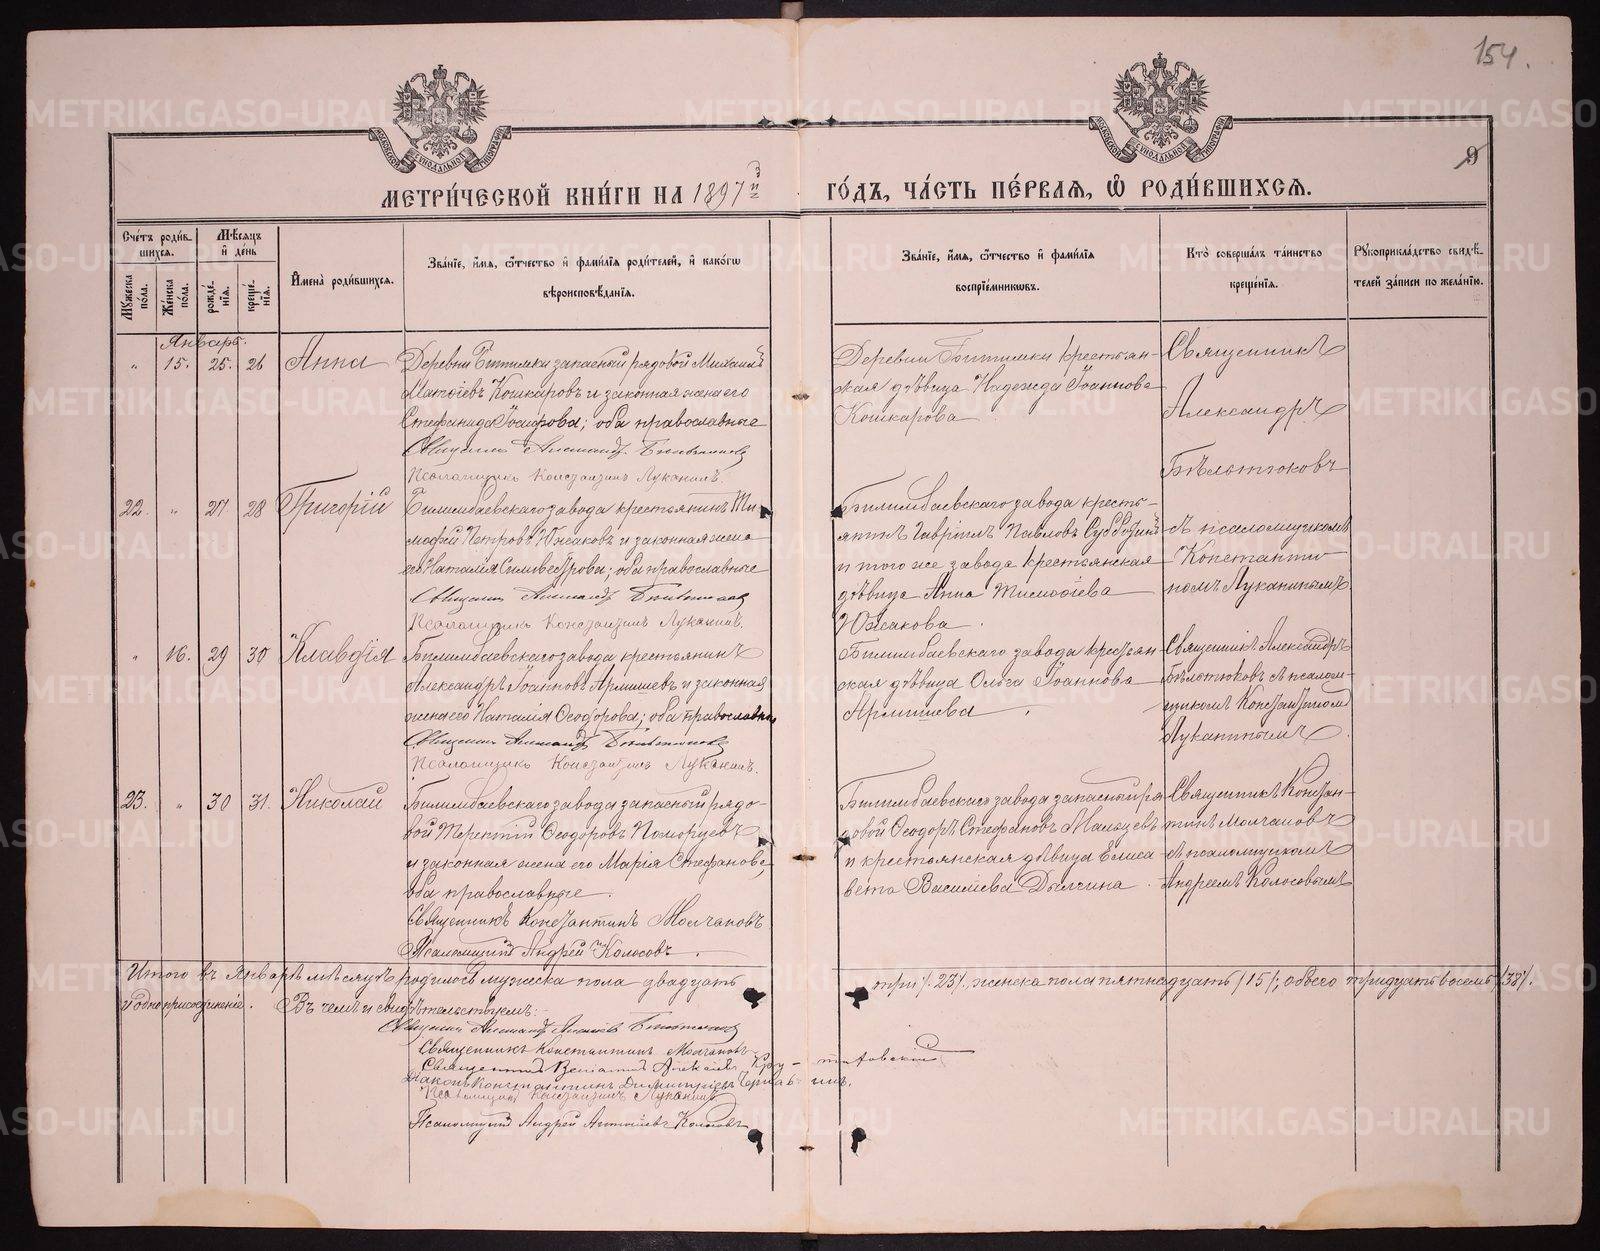 154.
9
МЕТРИ́ЧЕСКОЙ КНИ́ГИ НА 1897й ГО́ДЪ, ЧА́СТЬ ПЕ́РВАЯ, Ѽ РОДИ́ВШИХСЯ.
Сче́тъ роди́вшихся.
Мѣ́сяцъ и҆ де́нь
Мꙋ́жеска по́ла.
Же́нска по́ла.
рожде́нїя.
креще́нїя.
И҆мена̀ роди́вшихся.
Зва́нїе, и҆́мя, ѻ҆́тчество и҆ фами́лїя роди́телей, и҆ како́гѡ
вѣроисповѣ́данїя.
Зва́нїе, и҆́мя, ѻ҆́тчество и҆ фами́лїя
воспрїе́мникѡвъ.
Кто̀ соверша́лъ та́инство
креще́нїя.
Рꙋкоприкла́дство свидѣ́телей за́писи по жела́нїю.
Январь.
" 15. 25. 26 Анна
Деревни Битимки запасный рядовой Михаилъ
Матѳіевъ Кошкаровъ и законная жена его
Стефанида Іосифова; оба православные
Священникъ Александръ
Псаломщикъ Константинъ Луканинъ.
Деревни Битимки крестьян-
ская дѣвица Надежда Іоаннова
Кошкарова
Священникъ
Александръ
22. " 27. 28 Григорій
Билимбаевскаго завода крестьянинъ Ти-
мофей Петровъ Южаковъ и законная жена
его Наталія Сильвестрова; оба православные
Священникъ Александръ
Псаломщикъ Константинъ Луканинъ.
Билимбаевскаго завода кресть-
янинъ Гавріилъ Павловъ
и того же завода крестьянская
дѣвица Анна Тимоѳіева
Южакова.
съ псаломщикомъ
Константи-
номъ Луканинымъ.
" 16. 29 30 Клавдія
Билимбаевскаго завода крестьянинъ
Александръ Іоанновъ Армишевъ и законная
жена его Наталія Ѳеодорова; оба православные
Священникъ Александръ
Псаломщикъ Константинъ Луканинъ.
Билимбаевскаго завода крестьян-
ская дѣвица Ольга Іоаннова
Армишева.
Священникъ Александръ
съ псалом-
щикомъ Константиномъ
Луканинымъ
23. " 30 31. Николай
Билимбаевскаго завода запасный рядо-
вой Терентій Ѳеодоровъ Поморцевъ
и законная жена его Марія Стефанова,
оба православные.
Священникъ Константинъ Молчановъ
Псаломщикъ Андрей Колосовъ.
Билимбаевскаго завода запасный ря-
довой Ѳеодоръ Стефановъ Мальцевъ
и крестьянская дѣвица Елиса-
вета Василіева Дылдина.
Священникъ Констан-
тинъ Молчановъ
съ псаломщикомъ
Андреемъ Колосовымъ
Итого въ Январѣ мѣсяцѣ родилось мужеска пола двадцать три /23/, женска пола пятнадцать /15/, обоего тридцать восемь /38/.
и одно присоединеніе. Въ чемъ и свидѣтельствуемъ:
Священникъ Александръ
Священникъ Константинъ Молчановъ
Священникъ Веніаминъ Алексіевъ
Діаконъ Константинъ Димитріевъ
Псаломщикъ Константинъ Луканинъ
Псаломщикъ Андрей Колосовъ
METRIKI.GASO-URAL.RU